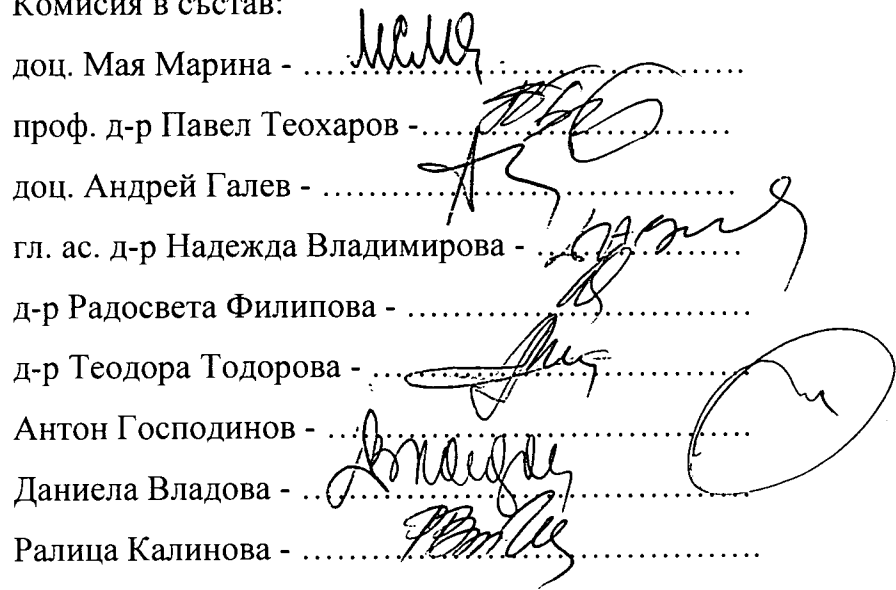 Комисия в състав:
доц. Мая Марина - ……………………………………
проф. д-р Павел Теохаров -……………………………
доц. Андрей Галев - ……………………………………
гл. ас. д-р Надежда Владимирова - …………………
д-р Радосвета Филипова - ……………………………
д-р Теодора Тодорова - ………………………………
Антон Господинов - ……………………………………
Даниела Владова - ………………………………………
Ралица Калинова - ………………………………………